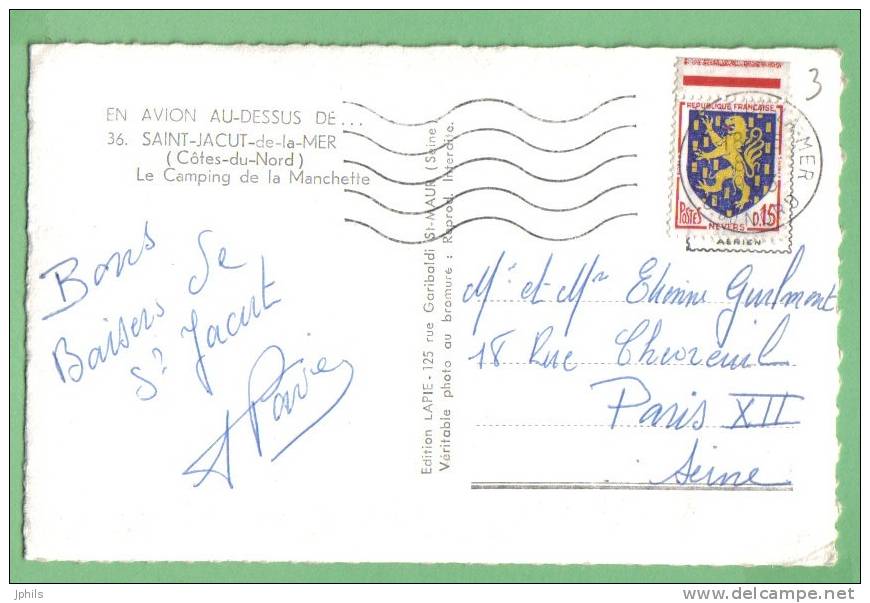 EN AVION AU-DESSUS DE...
36. SAINT-JACUT-de-la-MER
(Côtes-du-Nord)
Le Camping de la Manchette
Bons
Baisers de
St Jacut
Edition LAPIE - 125 rue Garibaldi St-MAUR (Seine)
Véritable photo au bromure : Reprod. Interdite.
3
REPUBLIQUE FRANÇAISE
POSTES 0.15
NEVERS
AÉRIEN
MER
Me et Mr Etienne Guilmont
18 Rue Chevreuil
Paris XII
Seine
jphils
www.delcampe.net